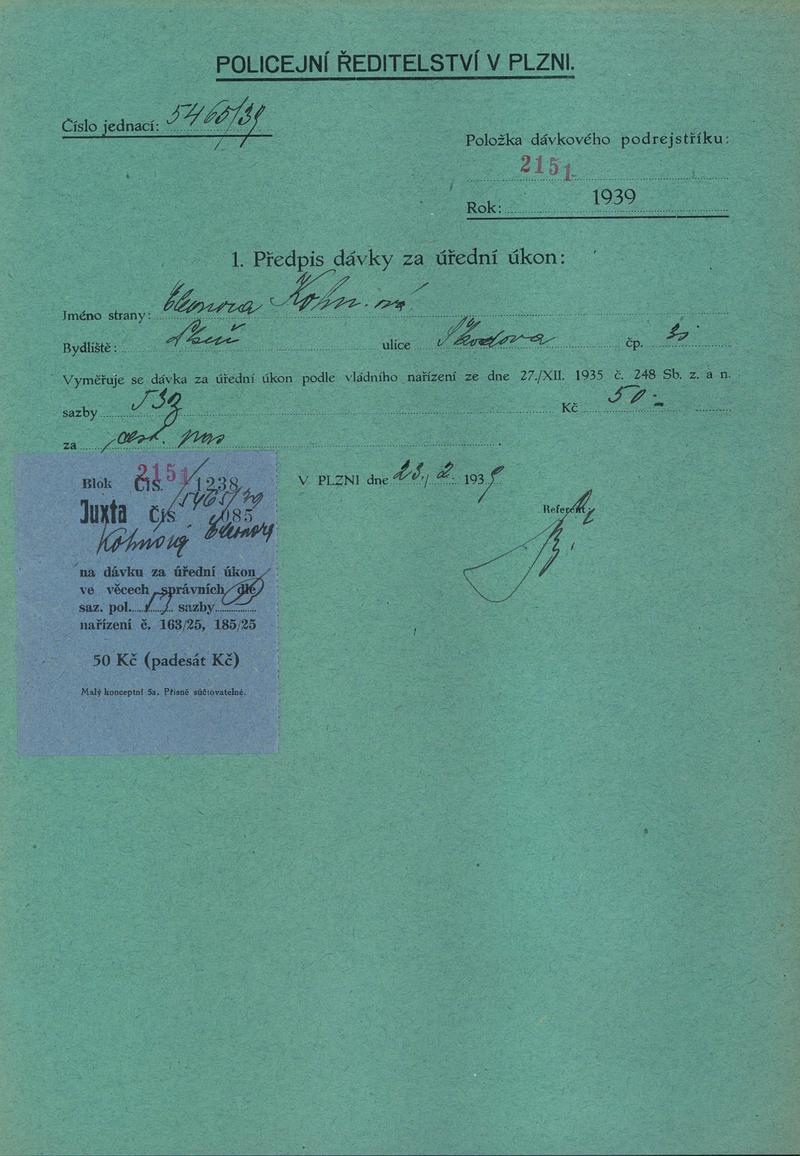 POLICEJNÍ ŘEDITELSTVÍ V PLZNI.
Číslo jednací: 5465/39
Položka dávkového podrejstříku:
2151
Rok: 1939
1. Předpis dávky za úřední úkon:
Jméno strany: Eleonora Kohnová
Bydliště: Plzeň ulice Škodova čp.
Vyměřuje se dávka za úřední úkon podle vládního nařízení ze dne 27./XII. 1935 č. 248 Sb. z. a n.
sazby Kč 50.-
za cest. pas
V PLZNI dne 23./2. 1939
Referent:
2151
Blok ČÍS. 1238
5465/39
Juxta ČÍS 085
Kohnová Eleonora
na dávku za úřední úkon
ve věcech správních dle
saz. pol. 17 sazby
nařízení č. 163/25, 185/25
50 Kč (padesát Kč)
Malý konceptní 5a. Přísně súčtovatelné.